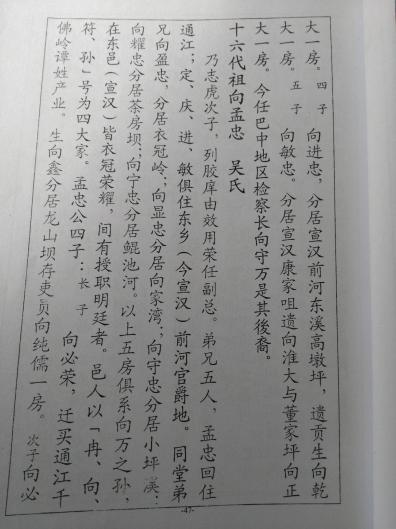 大一房。四子 向进忠，分居宣汉前河东溪高墩坪，遗贡生向乾
大一房。五子 向敏忠。分居宣汉康家咀遗向淮大与董家坪向正
大一房。今任巴中地区检察长向守万是其後裔。
十六代祖向孟忠 吴氏
乃志虎次子，列胶庠由效用荣任副总。弟兄五人，孟忠回住
通江；定、庆、进、敏俱住东乡（今宣汉）前河官爵地。同堂弟
兄向盈忠，分居衣冠岭；向显忠分居向家湾；向守忠分居小坪溪；
向耀忠分居茶房坝；向宁忠分居鲲池河。以上五房俱系向万之孙，
在东邑（宣汉）皆衣冠荣耀，间有授职明廷者。邑人以「冉、向、
符、孙」号为四大家。孟忠公四子：长子 向必荣，迁买通江千
佛岭谭姓产业。生向鑫分居龙山坝存吏贡向纯儒一房。次子向必
-47-